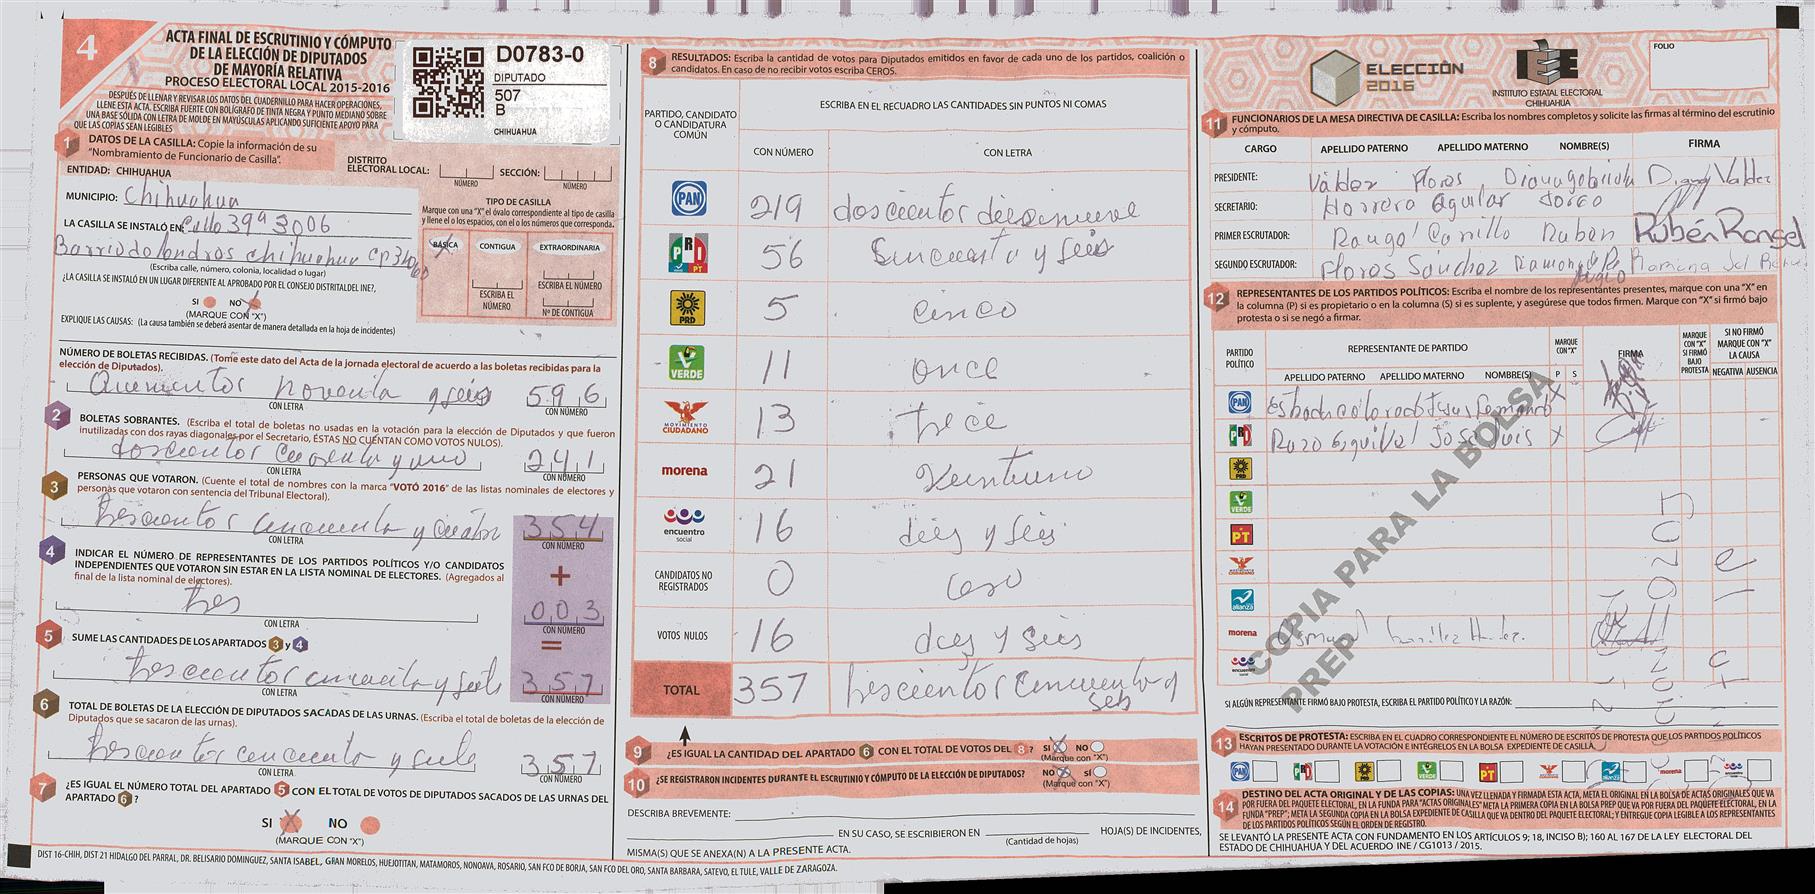 4
ACTA FINAL DE ESCRUTINIO Y CÓMPUTO
DE LA ELECCIÓN DE DIPUTADOS
DE MAYORÍA RELATIVA
PROCESO ELECTORAL LOCAL 2015-2016
DESPUÉS DE LLENAR Y REVISAR LOS DATOS DEL CUADERNILLO PARA HACER OPERACIONES,
LLENE ESTA ACTA. ESCRIBA FUERTE CON BOLÍGRAFO DE TINTA NEGRA Y PUNTO MEDIANO SOBRE
UNA BASE SÓLIDA CON LETRA DE MOLDE EN MAYÚSCULAS APLICANDO SUFICIENTE APOYO PARA
QUE LAS COPIAS SEAN LEGIBLES
D0783-0
DIPUTADO
507
B
CHIHUAHUA
1 DATOS DE LA CASILLA: Copie la información de su
"Nombramiento de Funcionario de Casilla".
ENTIDAD: CHIHUAHUA
DISTRITO
ELECTORAL LOCAL:
NÚMERO
SECCIÓN:
NÚMERO
MUNICIPIO: Chihuahua
LA CASILLA SE INSTALÓ EN: Calle 39ª 3006
Barrio de londres chihuahua CP
(Escriba calle, número, colonia, localidad o lugar)
¿LA CASILLA SE INSTALÓ EN UN LUGAR DIFERENTE AL APROBADO POR EL CONSEJO DISTRITAL DEL INE?,
SI NO X
(MARQUE CON "X")
EXPLIQUE LAS CAUSAS: (La causa también se deberá asentar de manera detallada en la hoja de incidentes)
TIPO DE CASILLA
Marque con una "X" el óvalo correspondiente al tipo de casilla
y llene el o los espacios, con el o los números que corresponda.
BÁSICA X CONTIGUA EXTRAORDINARIA
ESCRIBA EL NÚMERO
ESCRIBA EL NÚMERO
Nº DE CONTIGUA
NÚMERO DE BOLETAS RECIBIDAS. (Tome este dato del Acta de la jornada electoral de acuerdo a las boletas recibidas para la
elección de Diputados).
noventa y seis 596
CON LETRA CON NÚMERO
2 BOLETAS SOBRANTES. (Escriba el total de boletas no usadas en la votación para la elección de Diputados y que fueron
inutilizadas con dos rayas diagonales por el Secretario, ÉSTAS NO CUENTAN COMO VOTOS NULOS).
241
CON LETRA CON NÚMERO
3 PERSONAS QUE VOTARON. (Cuente el total de nombres con la marca "VOTÓ 2016" de las listas nominales de electores y
personas que votaron con sentencia del Tribunal Electoral).
354
CON LETRA CON NÚMERO
4 INDICAR EL NÚMERO DE REPRESENTANTES DE LOS PARTIDOS POLÍTICOS Y/O CANDIDATOS
INDEPENDIENTES QUE VOTARON SIN ESTAR EN LA LISTA NOMINAL DE ELECTORES. (Agregados al
final de la lista nominal de electores).
+
tres 003
CON LETRA CON NÚMERO
5 SUME LAS CANTIDADES DE LOS APARTADOS 3 y 4
=
357
CON LETRA CON NÚMERO
6 TOTAL DE BOLETAS DE LA ELECCIÓN DE DIPUTADOS SACADAS DE LAS URNAS. (Escriba el total de boletas de la elección de
Diputados que se sacaron de las urnas).
357
CON LETRA CON NÚMERO
7 ¿ES IGUAL EL NÚMERO TOTAL DEL APARTADO 5 CON EL TOTAL DE VOTOS DE DIPUTADOS SACADOS DE LAS URNAS DEL
APARTADO 6?
SI X NO
(MARQUE CON "X")
DIST 16-CHIH, DIST 21 HIDALGO DEL PARRAL, DR. BELISARIO DOMINGUEZ, SANTA ISABEL, GRAN MORELOS, HUEJOTITAN, MATAMOROS, NONOAVA, ROSARIO, SAN FCO DE BORJA, SAN FCO DEL ORO, SANTA BARBARA, SATEVO, EL TULE, VALLE DE ZARAGOZA.
8 RESULTADOS: Escriba la cantidad de votos para Diputados emitidos en favor de cada uno de los partidos, coalición o
candidatos. En caso de no recibir votos escriba CEROS.
PARTIDO, CANDIDATO
O CANDIDATURA
COMÚN
ESCRIBA EN EL RECUADRO LAS CANTIDADES SIN PUNTOS NI COMAS
CON NÚMERO CON LETRA
PAN 219 doscientos diesinueve
PRD PT 56 sincuenta y seis
PRD 5 cinco
VERDE 11 once
MOVIMIENTO CIUDADANO 13 trece
morena 21 Veintiuno
encuentro social 16 dies y seis
CANDIDATOS NO REGISTRADOS 0 cero
VOTOS NULOS 16 dies y seis
TOTAL 357
9 ¿ES IGUAL LA CANTIDAD DEL APARTADO 6 CON EL TOTAL DE VOTOS DEL 8? SI X NO
(Marque con "X")
10 ¿SE REGISTRARON INCIDENTES DURANTE EL ESCRUTINIO Y CÓMPUTO DE LA ELECCIÓN DE DIPUTADOS? NO X SÍ
(Marque con "X")
DESCRIBA BREVEMENTE:
EN SU CASO, SE ESCRIBIERON EN HOJA(S) DE INCIDENTES,
(Cantidad de hojas)
MISMA(S) QUE SE ANEXA(N) A LA PRESENTE ACTA.
ELECCIÓN
2016
IEE
INSTITUTO ESTATAL ELECTORAL
CHIHUAHUA
FOLIO
11 FUNCIONARIOS DE LA MESA DIRECTIVA DE CASILLA: Escriba los nombres completos y solicite las firmas al término del escrutinio
y cómputo.
CARGO APELLIDO PATERNO APELLIDO MATERNO NOMBRE(S) FIRMA
PRESIDENTE: Váldez Flores Diana Valdez
SECRETARIO: Herrera Aguilar
PRIMER ESCRUTADOR: Rangel Carrillo Ruben Rubén Rangel
SEGUNDO ESCRUTADOR: Flores Sánchez
12 REPRESENTANTES DE LOS PARTIDOS POLÍTICOS: Escriba el nombre de los representantes presentes, marque con una "X" en
la columna (P) si es propietario o en la columna (S) si es suplente, y asegúrese que todos firmen. Marque con "X" si firmó bajo
protesta o si se negó a firmar.
PARTIDO POLÍTICO
REPRESENTANTE DE PARTIDO
APELLIDO PATERNO APELLIDO MATERNO NOMBRE(S)
MARQUE CON "X"
P S
FIRMA
MARQUE CON "X" SI FIRMÓ BAJO PROTESTA
SI NO FIRMÓ MARQUE CON "X" LA CAUSA
NEGATIVA AUSENCIA
PAN X
PRD Esquivel Jose Luis X
PRD
VERDE
PT
MOVIMIENTO CIUDADANO
alianza
morena
encuentro social
COPIA PARA LA BOLSA
PREP
SI ALGÚN REPRESENTANTE FIRMÓ BAJO PROTESTA, ESCRIBA EL PARTIDO POLÍTICO Y LA RAZÓN:
13 ESCRITOS DE PROTESTA: ESCRIBA EN EL CUADRO CORRESPONDIENTE EL NÚMERO DE ESCRITOS DE PROTESTA QUE LOS PARTIDOS POLÍTICOS
HAYAN PRESENTADO DURANTE LA VOTACIÓN E INTÉGRELOS EN LA BOLSA EXPEDIENTE DE CASILLA.
PAN PRD PRD VERDE PT alianza morena
14 DESTINO DEL ACTA ORIGINAL Y DE LAS COPIAS: UNA VEZ LLENADA Y FIRMADA ESTA ACTA, META EL ORIGINAL EN LA BOLSA DE ACTAS ORIGINALES QUE VA
POR FUERA DEL PAQUETE ELECTORAL, EN LA FUNDA PARA "ACTAS ORIGINALES" META LA PRIMERA COPIA EN LA BOLSA PREP QUE VA POR FUERA DEL PAQUETE ELECTORAL, EN LA
FUNDA "PREP"; META LA SEGUNDA COPIA EN LA BOLSA EXPEDIENTE DE CASILLA QUE VA DENTRO DEL PAQUETE ELECTORAL; Y ENTREGUE COPIA LEGIBLE A LOS REPRESENTANTES
DE LOS PARTIDOS POLÍTICOS SEGÚN EL ORDEN DE REGISTRO.
SE LEVANTÓ LA PRESENTE ACTA CON FUNDAMENTO EN LOS ARTÍCULOS 9; 18, INCISO B); 160 AL 167 DE LA LEY ELECTORAL DEL
ESTADO DE CHIHUAHUA Y DEL ACUERDO INE / CG1013 / 2015.